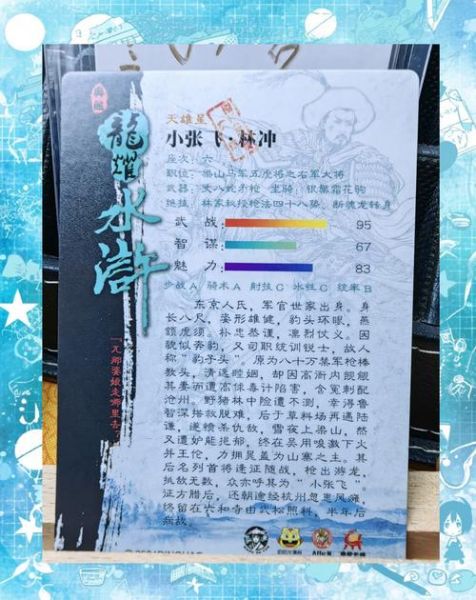 龍耀
水滸
天雄星
小张飞·林冲
座次：六
职位：梁山马军五虎将之右军大将
武器：丈八蛇矛枪 坐骑：银鬃霜花驹
绝技：林家秘授枪法四十八势；断魂龙转身
武 战： 95
智 谋： 67
魅 力： 83
步战A 骑术A 射技C 水性C 统率B
东京人氏，军官世家出身。身
长八尺，姿形雄健，豹头环眼，燕
颔虎须。朴忠恭谨，凛烈仗义。因
貌似奔豹，又司职统训锐士，故人
称“豹子头”。原为八十万禁军枪棒
教头，清逸瞪烟，却因高衙内觊觎
其妻而遭高俅毒计陷害，含冤刺配
沧州。野猪林中险遭不测，幸得鲁
智深搭救脱难，后于草料场再遇陆
谦，遂赎杀仇敌，雪夜上梁山，然
又遭妒能挠郁，终在吴用唆激下火
并王伦，力拥晁盖为山寨之主。其
后名列首将逢征随战，枪出游龙，
执敌无数，众亦呼其为“小张飞”。
征方腊后，还朝途经杭州忽患风瘫，
终留在六和寺由武松照料，半年后
病故。
「兀那婆娘走哪里去？」